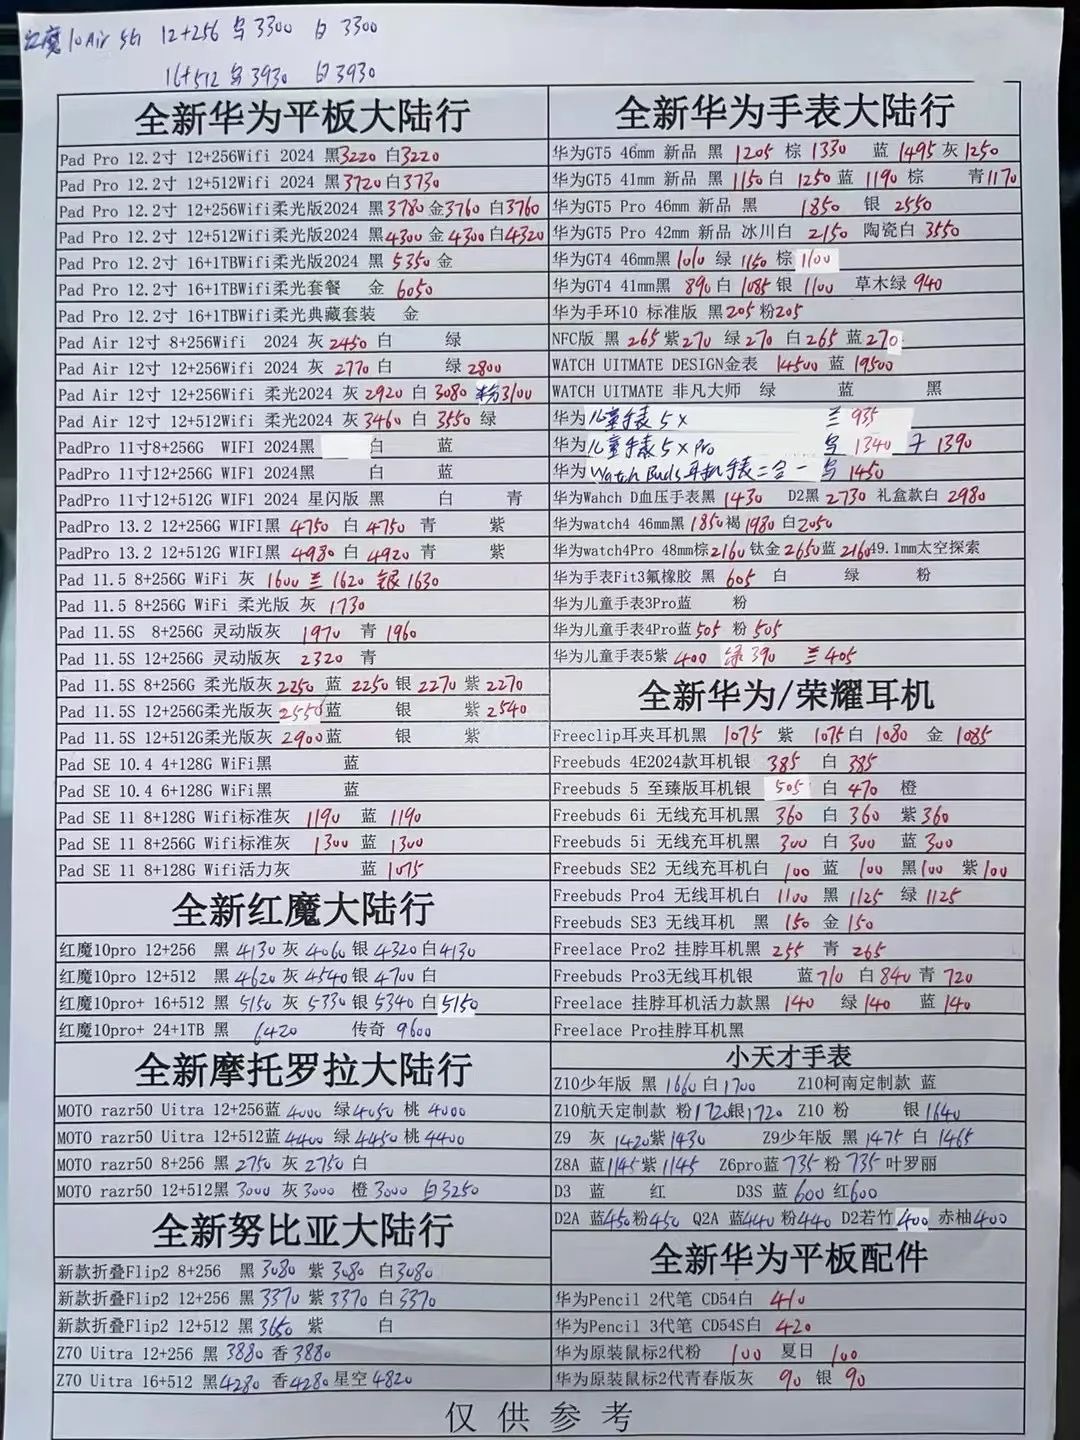 红魔10Air 5G 12+256 乌3300 白3300
16+512 乌3930 白3930
全新华为平板大陆行
Pad Pro 12.2寸 12+256Wifi 2024 黑3220白3220
Pad Pro 12.2寸 12+512Wifi 2024 黑3720白3730
Pad Pro 12.2寸 12+256Wifi柔光版2024 黑3780金3760 白3760
Pad Pro 12.2寸 12+512Wifi柔光版2024 黑4300金4300白4320
Pad Pro 12.2寸 16+1TBWifi柔光版2024 黑 5350 金
Pad Pro 12.2寸 16+1TBWifi柔光套餐 金 6050
Pad Pro 12.2寸 16+1TBWifi柔光典藏套装 金
Pad Air 12寸 8+256Wifi 2024 灰2450白 绿
Pad Air 12寸 12+256Wifi 2024 灰 2770白 绿2800
Pad Air 12寸 12+256Wifi 柔光2024 灰2920白3080粉3100
Pad Air 12寸 12+512Wifi 柔光2024 灰3460白3550绿
PadPro 11寸8+256G WIFI 2024黑 白 蓝
PadPro 11寸12+256G WIFI 2024黑 白 蓝
PadPro 11寸12+512G WIFI 2024 星闪版 黑 白 青
PadPro 13.2 12+256G WIFI黑 4750 白 4750 青 紫
PadPro 13.2 12+512G WIFI黑 4980 白 4920 青 紫
Pad 11.5 8+256G WiFi 灰 1600 兰 1620 银1630
Pad 11.5 8+256G WiFi 柔光版 灰 1730
Pad 11.5S 8+256G 灵动版灰 1970 青 1960
Pad 11.5S 12+256G 灵动版灰 2320 青
Pad 11.5S 8+256G 柔光版灰2250 蓝 2250银 2270紫2270
Pad 11.5S 12+256G柔光版灰2550蓝 银 紫2540
Pad 11.5S 12+512G柔光版灰 2900蓝 银 紫
Pad SE 10.4 4+128G WiFi黑 蓝
Pad SE 10.4 6+128G WiFi黑 蓝
Pad SE 11 8+128G Wifi标准灰 1190 蓝 1190
Pad SE 11 8+256G Wifi标准灰 1300 蓝 1300
Pad SE 11 8+128G Wifi活力灰 蓝 1075
全新红魔大陆行
红魔10pro 12+256 黑4130灰4060银4320白4130
红魔10pro 12+512 黑4620灰4540银4700白
红魔10pro+ 16+512 黑 5150 灰 5330银5340白5150
红魔10pro+ 24+1TB 黑 6420 传奇 9600
全新摩托罗拉大陆行
MOTO razr50 Uitra 12+256蓝 4000 绿4050桃 4000
MOTO razr50 Uitra 12+512蓝4400 绿 4450桃 4400
MOTO razr50 8+256 黑2750 灰2750白
MOTO razr50 12+512黑3000 灰3000 橙3000 白3250
全新努比亚大陆行
新款折叠Flip2 8+256 黑3080 紫3080 白3080
新款折叠Flip2 12+256 黑3370 紫3370 白3370
新款折叠Flip2 12+512 黑3650 紫 白
Z70 Uitra 12+256 黑 3880 香3880
Z70 Uitra 16+512 黑4280 香4280星空4820
全新华为手表大陆行
华为GT5 46mm 新品 黑 1205 棕 1330 蓝 1495灰1250
华为GT5 41mm 新品 黑 1150白 1250蓝 1190棕 青1170
华为GT5 Pro 46mm 新品 黑 1850 银 2550
华为GT5 Pro 42mm 新品 冰川白 2150 陶瓷白 3550
华为GT4 46mm黑1010 绿 1150棕 1100
华为GT4 41mm黑 890白1085银 1100 草木绿 940
华为手环10 标准版 黑205粉205
NFC版 黑 265紫270 绿270 白265蓝270
WATCH UITMATE DESIGN金表 14500 蓝 19500
WATCH UITMATE 非凡大师 绿 蓝 黑
华为儿童手表5X 兰935
华为儿童手表5XPro 乌 1340 1390
华为Watch Buds耳机手表二合一 乌 1450
华为Wahch D血压手表黑 1430 D2黑 2730 礼盒款白 2980
华为watch4 46mm黑1850褐1980白2050
华为watch4Pro 48mm棕2160钛金2650蓝216049.1mm太空探索
华为手表Fit3氟橡胶 黑 605 白 绿 粉
华为儿童手表3Pro蓝 粉
华为儿童手表4Pro蓝505 粉505
华为儿童手表5紫400 绿390 兰405
全新华为/荣耀耳机
Freeclip耳夹耳机黑 1075 紫 1075白1080 金 1085
Freebuds 4E2024款耳机银 385 白 385
Freebuds 5 至臻版耳机银 505 白 470 橙
Freebuds 6i 无线充耳机黑 360 白 360 紫360
Freebuds 5i 无线充耳机黑 300 白 300 蓝300
Freebuds SE2 无线充耳机白 100 蓝 100 黑100 紫100
Freebuds Pro4 无线耳机白 1100 黑 1125 绿 1125
Freebuds SE3 无线耳机 黑 150 金150
Freelace Pro2 挂脖耳机黑 255 青 265
Freebuds Pro3无线耳机银 蓝710 白840青 720
Freelace 挂脖耳机活力款黑 140 绿140 蓝140
Freelace Pro挂脖耳机黑
小天才手表
Z10少年版 黑 1660白1700 Z10柯南定制款 蓝
Z10航天定制款 粉1720银1720 Z10 粉 银1640
Z9 灰 1420紫1430 Z9少年版 黑1475白 1465
Z8A 蓝1145紫1145 Z6pro蓝735粉735叶罗丽
D3 蓝 红 D3S 蓝600红600
D2A 蓝450粉450 Q2A 蓝440粉440 D2若竹400 赤柚400
全新华为平板配件
华为Pencil 2代笔 CD54白 410
华为Pencil 3代笔 CD54S白 420
华为原装鼠标2代粉 100 夏日 100
华为原装鼠标2代青春版灰 90 银 90
仅供参考